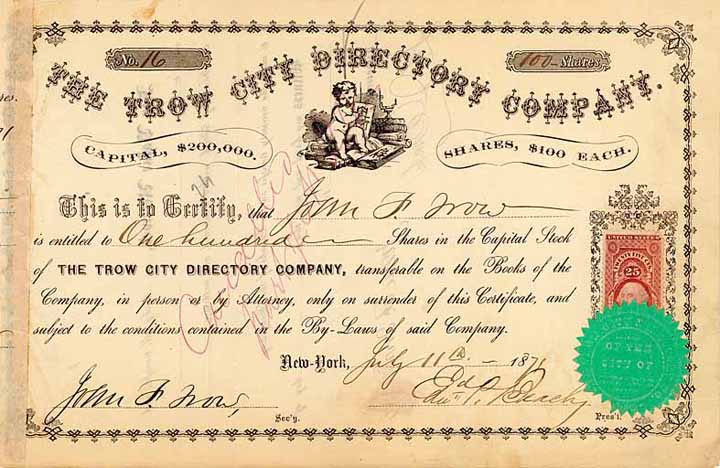 No. 16
100 Shares
THE TROW CITY DIRECTORY COMPANY.
CAPITAL, $200,000.
SHARES, $100 EACH.
This is to Certify, that John F. Trow
is entitled to One hundred Shares in the Capital Stock
of THE TROW CITY DIRECTORY COMPANY, transferable on the Books of the
Company, in person or by Attorney, only on surrender of this Certificate, and
subject to the conditions contained in the By-Laws of said Company.
New-York, July 11th 1871
John F. Trow, Sec'y.
Pres't.
Cancelled
UNITED STATES
25
OF THE
CITY OF